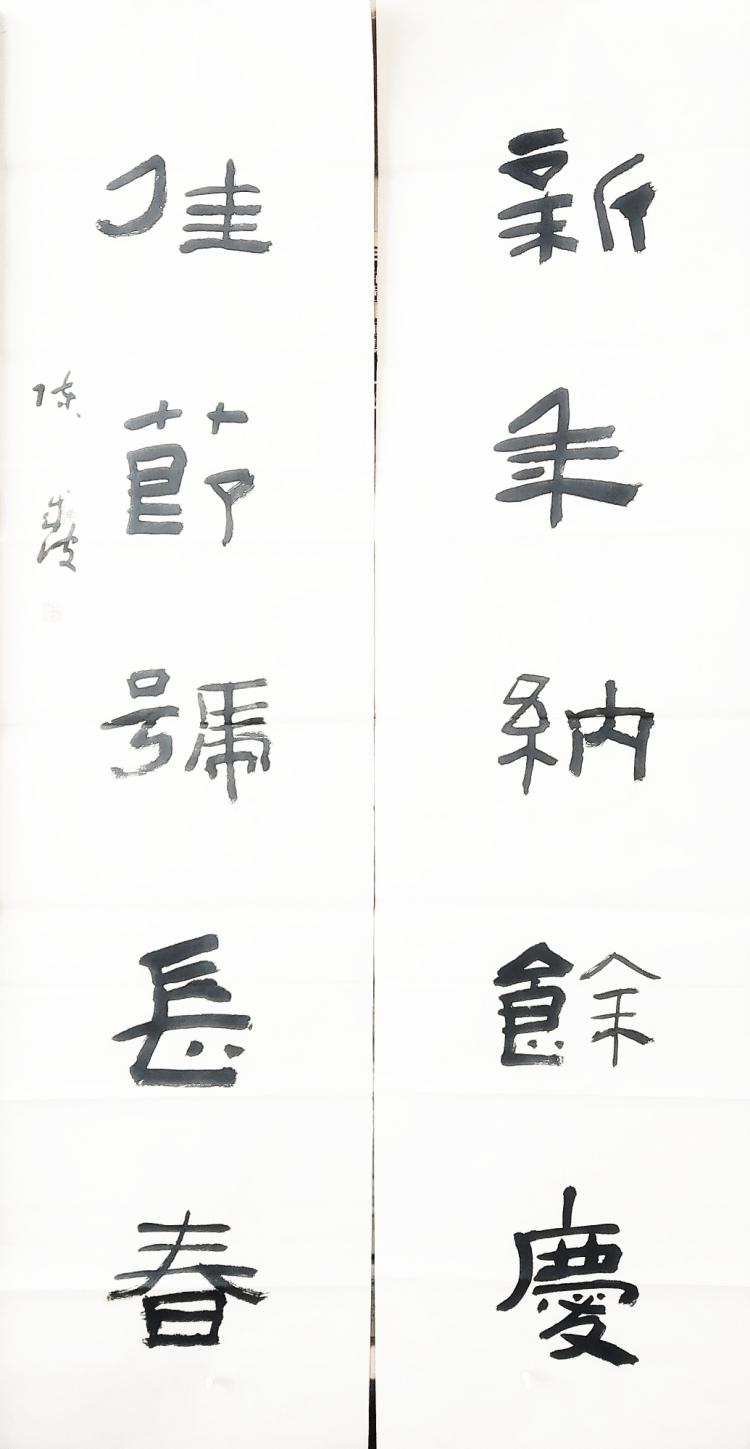 新年納餘慶
佳節號長春